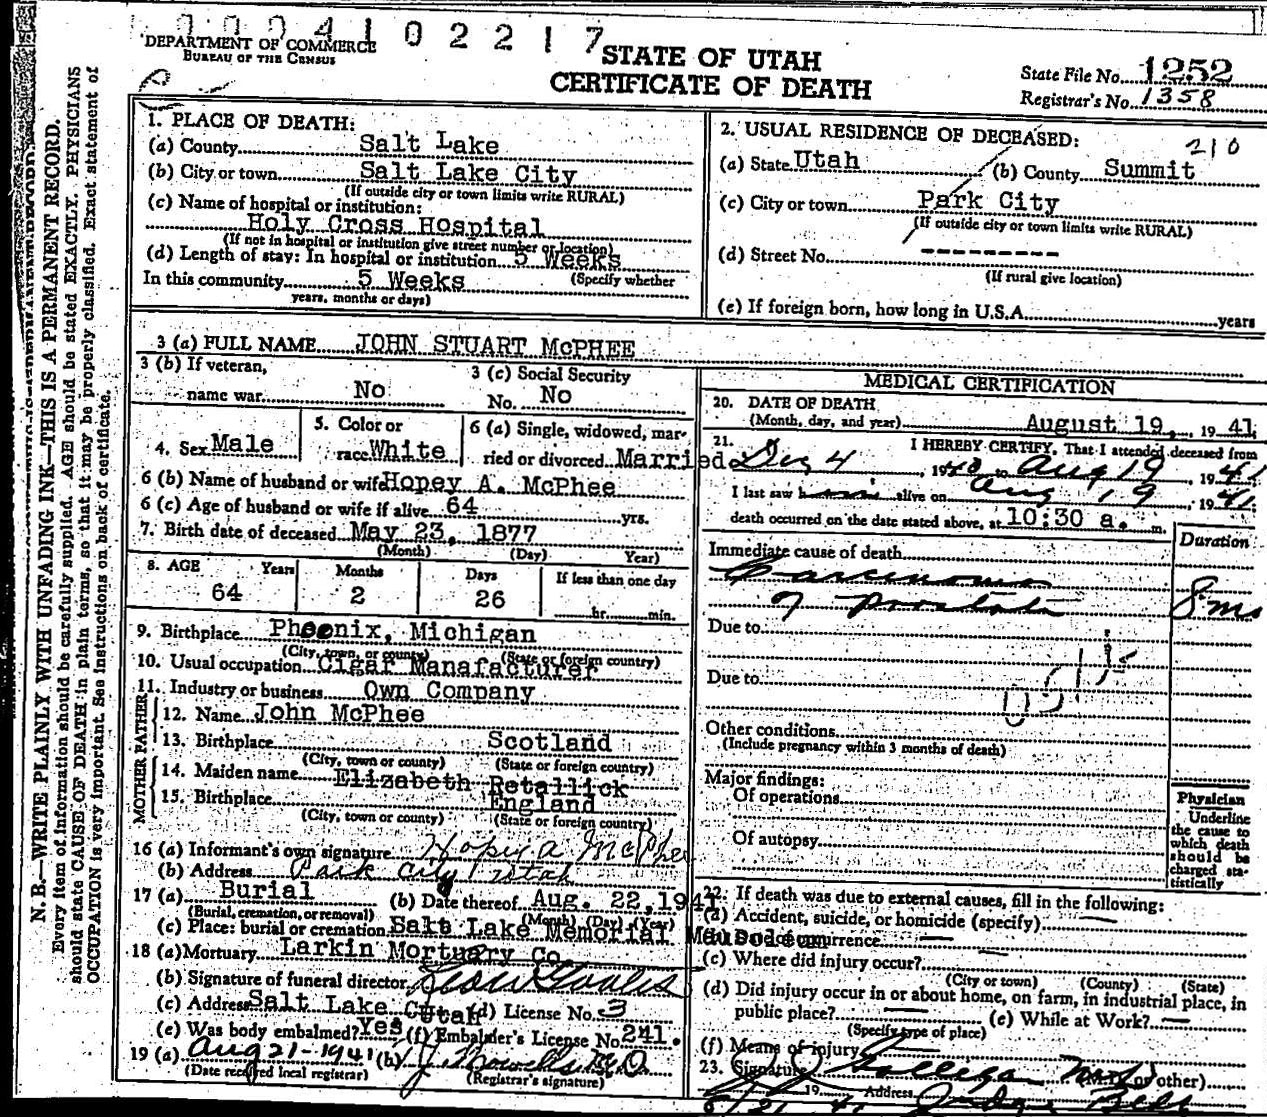 000410 2217
DEPARTMENT OF COMMERCE
BUREAU OF THE CENSUS
STATE OF UTAH
CERTIFICATE OF DEATH
State File No. 1252
Registrar's No. 1358
N. B.—WRITE PLAINLY WITH UNFADING INK—THIS IS A PERMANENT RECORD.
Every item of information should be carefully supplied. AGE should be stated EXACTLY. PHYSICIANS
should state CAUSE OF DEATH in plain terms, so that it may be properly classified. Exact statement of
OCCUPATION is very important. See instructions on back of certificate.
1. PLACE OF DEATH:
(a) County Salt Lake
(b) City or town Salt Lake City
(If outside city or town limits write RURAL)
(c) Name of hospital or institution:
Holy Cross Hospital
(If not in hospital or institution give street number or location)
(d) Length of stay: In hospital or institution 5 Weeks
(Specify whether
In this community 5 Weeks
years, months or days)
2. USUAL RESIDENCE OF DECEASED:
210
(a) State Utah (b) County Summit
(c) City or town Park City
(If outside city or town limits write RURAL)
(d) Street No. ---------
(If rural give location)
(e) If foreign born, how long in U.S.A. years
3 (a) FULL NAME JOHN STUART McPHEE
3 (b) If veteran,
name war No
3 (c) Social Security
No. No
4. Sex Male
5. Color or
race White
6 (a) Single, widowed, mar-
ried or divorced Married
6 (b) Name of husband or wife Hopey A. McPhee
6 (c) Age of husband or wife if alive 64 yrs.
7. Birth date of deceased May 23, 1877
(Month) (Day) Year)
8. AGE Years Months Days If less than one day
64 2 26 hr. min.
9. Birthplace Phoenix, Michigan
(City, town, or county) (State or foreign country)
10. Usual occupation Cigar Manafacturer
11. Industry or business Own Company
FATHER
12. Name John McPhee
13. Birthplace Scotland
(City, town or county) (State or foreign country)
MOTHER
14. Maiden name Elizabeth Retallick
15. Birthplace England
(City, town or county) (State or foreign country)
16 (a) Informant's own signature Hopey A McPhee
(b) Address Park City Utah
17 (a) Burial (b) Date thereof Aug. 22, 1941
(Burial, cremation, or removal) (Month) (Day) (Year)
(c) Place: burial or cremation Salt Lake Memorial Mausoleum
18 (a) Mortuary Larkin Mortuary Co
(b) Signature of funeral director
(c) Address Salt Lake City Utah (d) License No. 3
(e) Was body embalmed? Yes (f) Embalmer's License No. 241.
19 (a) Aug 21-1941 (b)
(Date received local registrar) (Registrar's signature)
MEDICAL CERTIFICATION
20. DATE OF DEATH
(Month, day, and year) August 19, 1941
21. I HEREBY CERTIFY, That I attended deceased from
Dec 4, 1940 to Aug 19, 1941
I last saw him alive on Aug 19, 1941
death occurred on the date stated above, at 10:30 a. m.
Duration
Immediate cause of death
Carcinoma
of prostate 8 mo
Due to
Due to
Other conditions
(Include pregnancy within 3 months of death)
Major findings:
Of operations
Of autopsy
Physician
Underline
the cause to
which death
should be
charged sta-
tistically
22. If death was due to external causes, fill in the following:
(a) Accident, suicide, or homicide (specify) —
(b) Date of occurrence —
(c) Where did injury occur?
(City or town) (County) (State)
(d) Did injury occur in or about home, on farm, in industrial place, in
public place? — (e) While at Work? —
(Specify type of place)
(f) Means of injury
23. Signature M.D. (M.D. or other)
8/21 1941 Address Judge Bldg